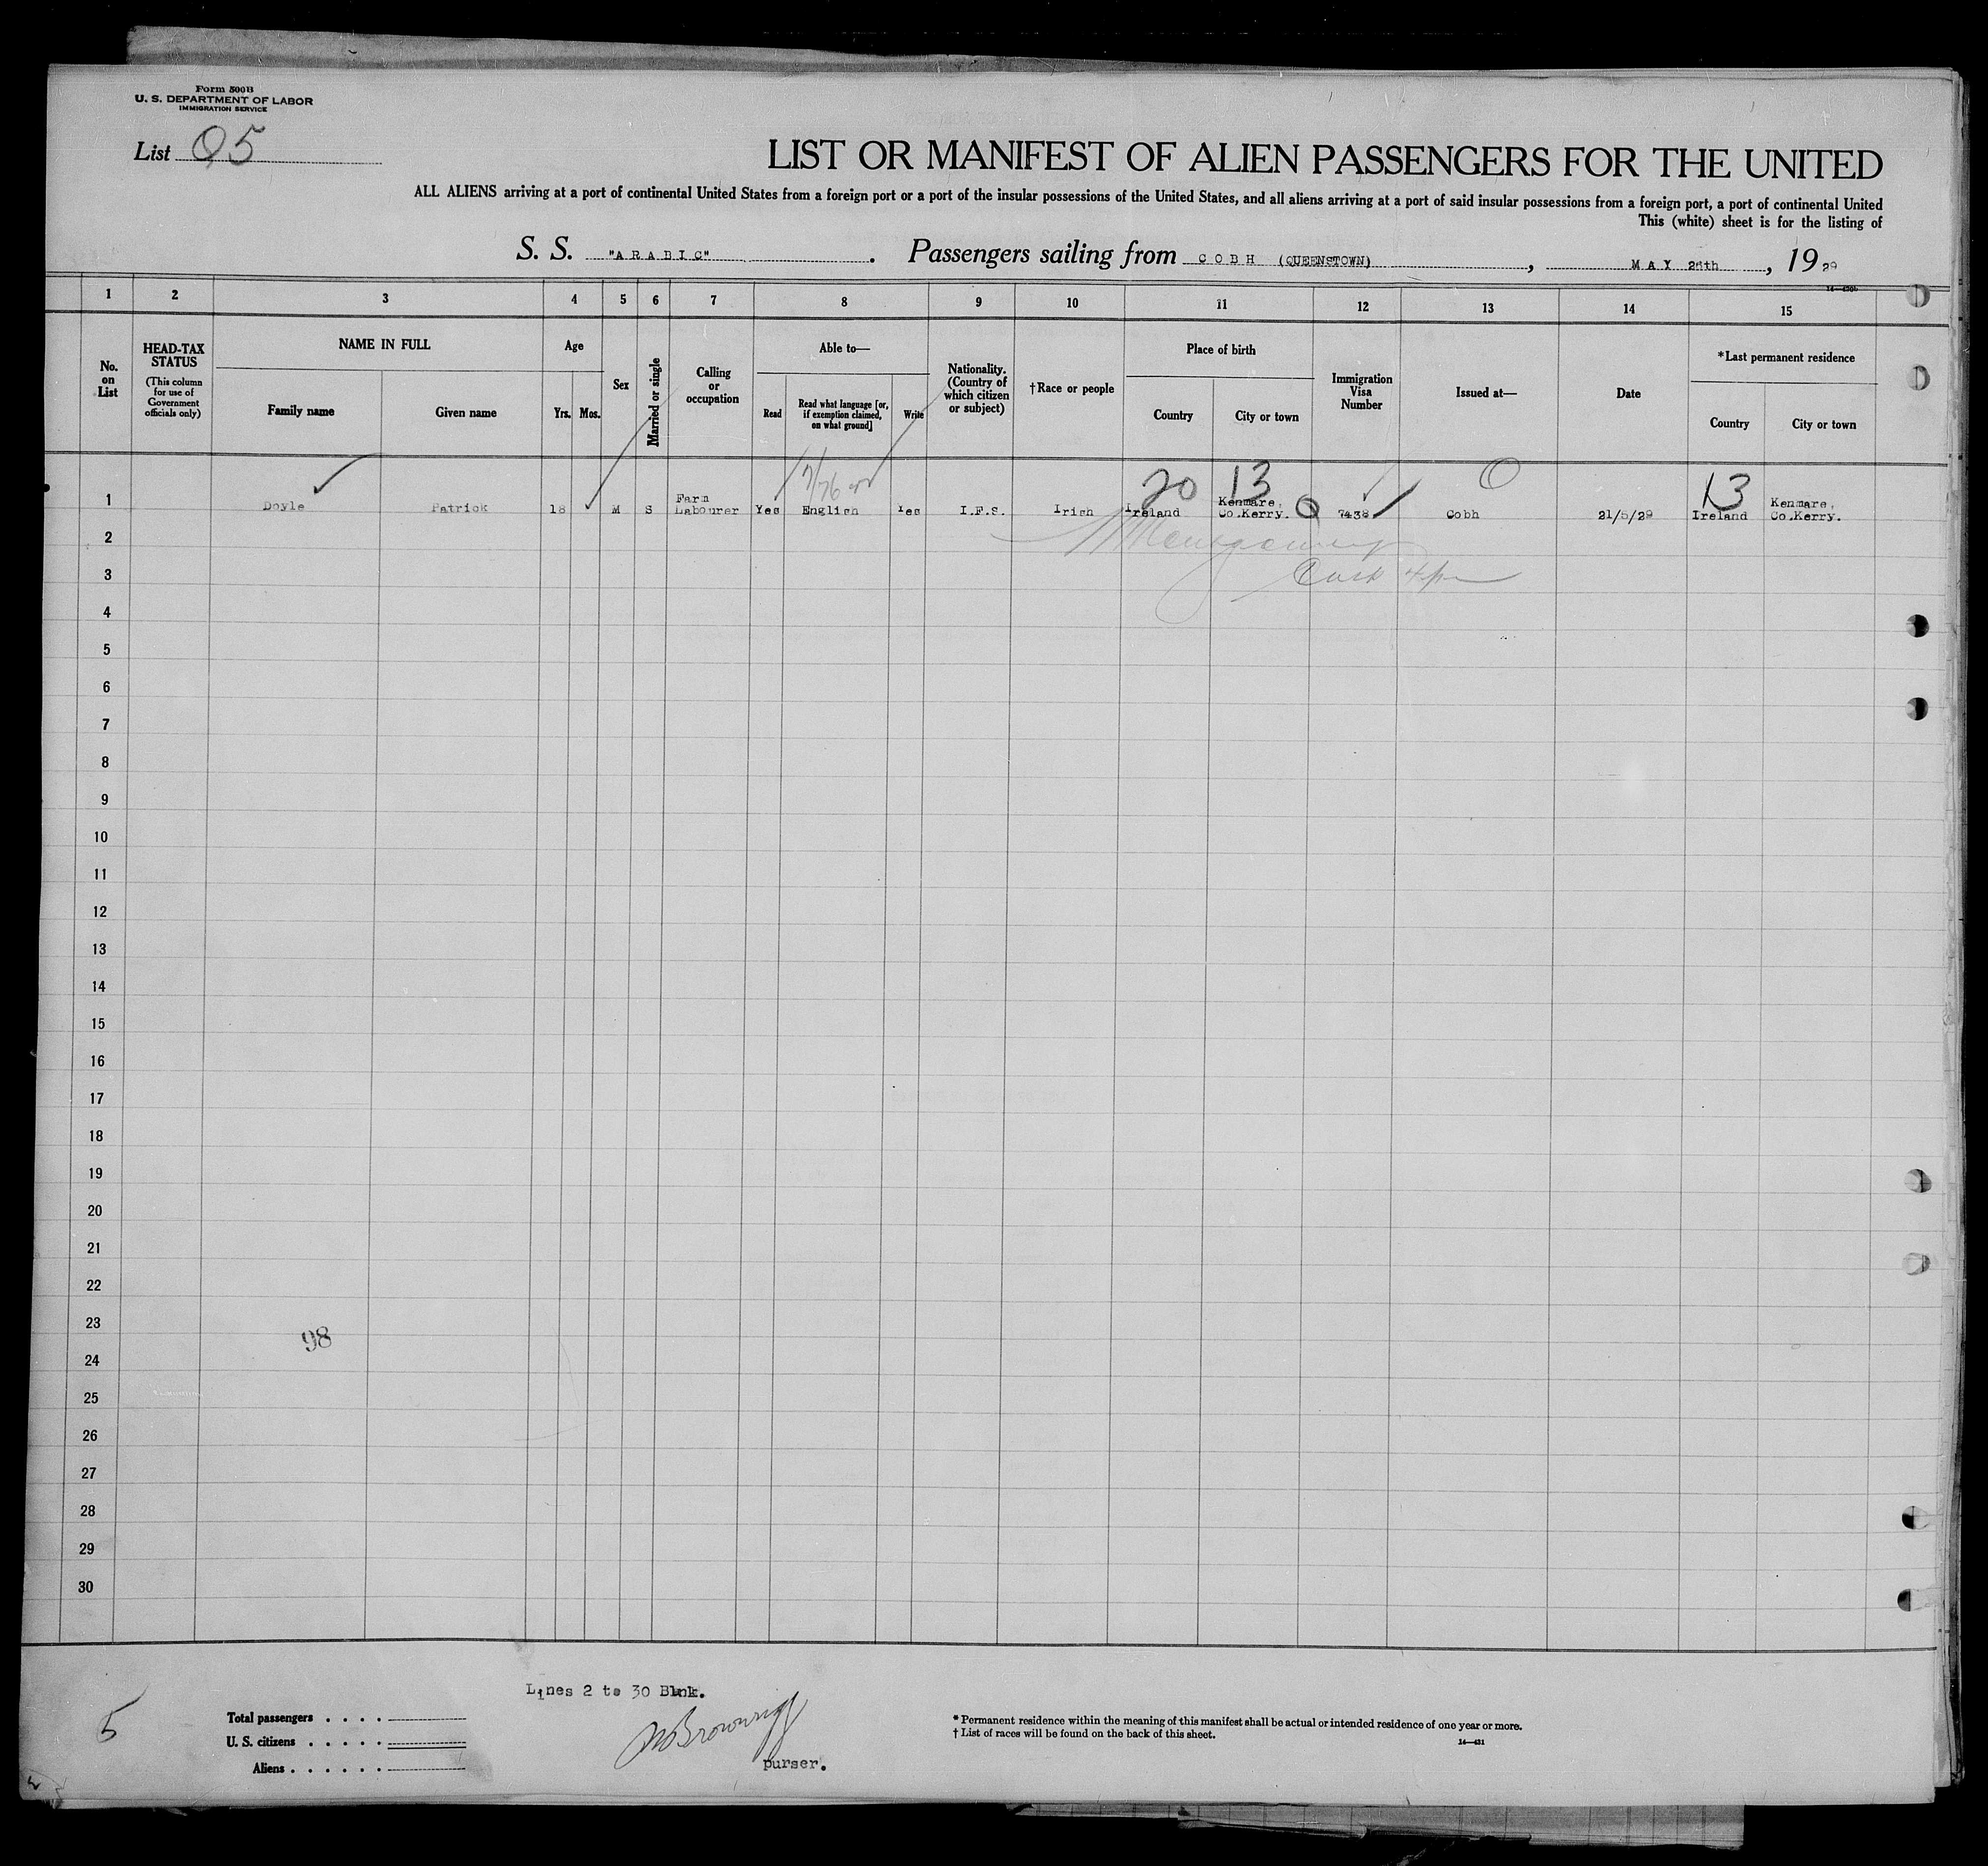 Form 500B
U. S. DEPARTMENT OF LABOR
IMMIGRATION SERVICE
List 95
LIST OR MANIFEST OF ALIEN PASSENGERS FOR THE UNITED
ALL ALIENS arriving at a port of continental United States from a foreign port or a port of the insular possessions of the United States, and all aliens arriving at a port of said insular possessions from a foreign port, a port of continental United
This (white) sheet is for the listing of
S. S. "ARABIC" . Passengers sailing from COBH (QUEENSTOWN) , MAY 26th , 1929
1 2 3 4 5 6 7 8 9 10 11 12 13 14 15
No. on List
HEAD-TAX STATUS
(This column for use of Government officials only)
NAME IN FULL
Family name
Given name
Age
Yrs.
Mos.
Sex
Married or single
Calling or occupation
Able to—
Read
Read what language [or, if exemption claimed, on what ground]
Write
Nationality. (Country of which citizen or subject)
†Race or people
Place of birth
Country
City or town
Immigration Visa Number
Issued at—
Date
*Last permanent residence
Country
City or town
20 13 13
1 Doyle Patrick 18 M S Farm Labourer Yes English Yes I.F.S. Irish Ireland Kenmare, Co.Kerry. 7438 Cobh 21/5/29 Ireland Kenmare, Co.Kerry.
2
3
4
5
6
7
8
9
10
11
12
13
14
15
16
17
18
19
20
21
22
23
98
24
25
26
27
28
29
30
Lines 2 to 30 Blnk.
5
Total passengers
U. S. citizens
Aliens
purser.
* Permanent residence within the meaning of this manifest shall be actual or intended residence of one year or more.
† List of races will be found on the back of this sheet.
14—431